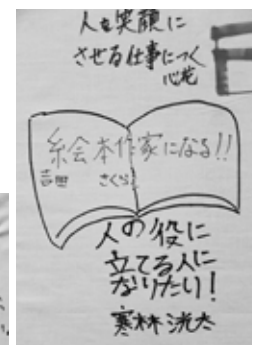 人を笑顔に
させる仕事につく
心花
絵本作家になる!!
吉田 さくら
人の役に
立てる人に
なりたい!
寒林洸太